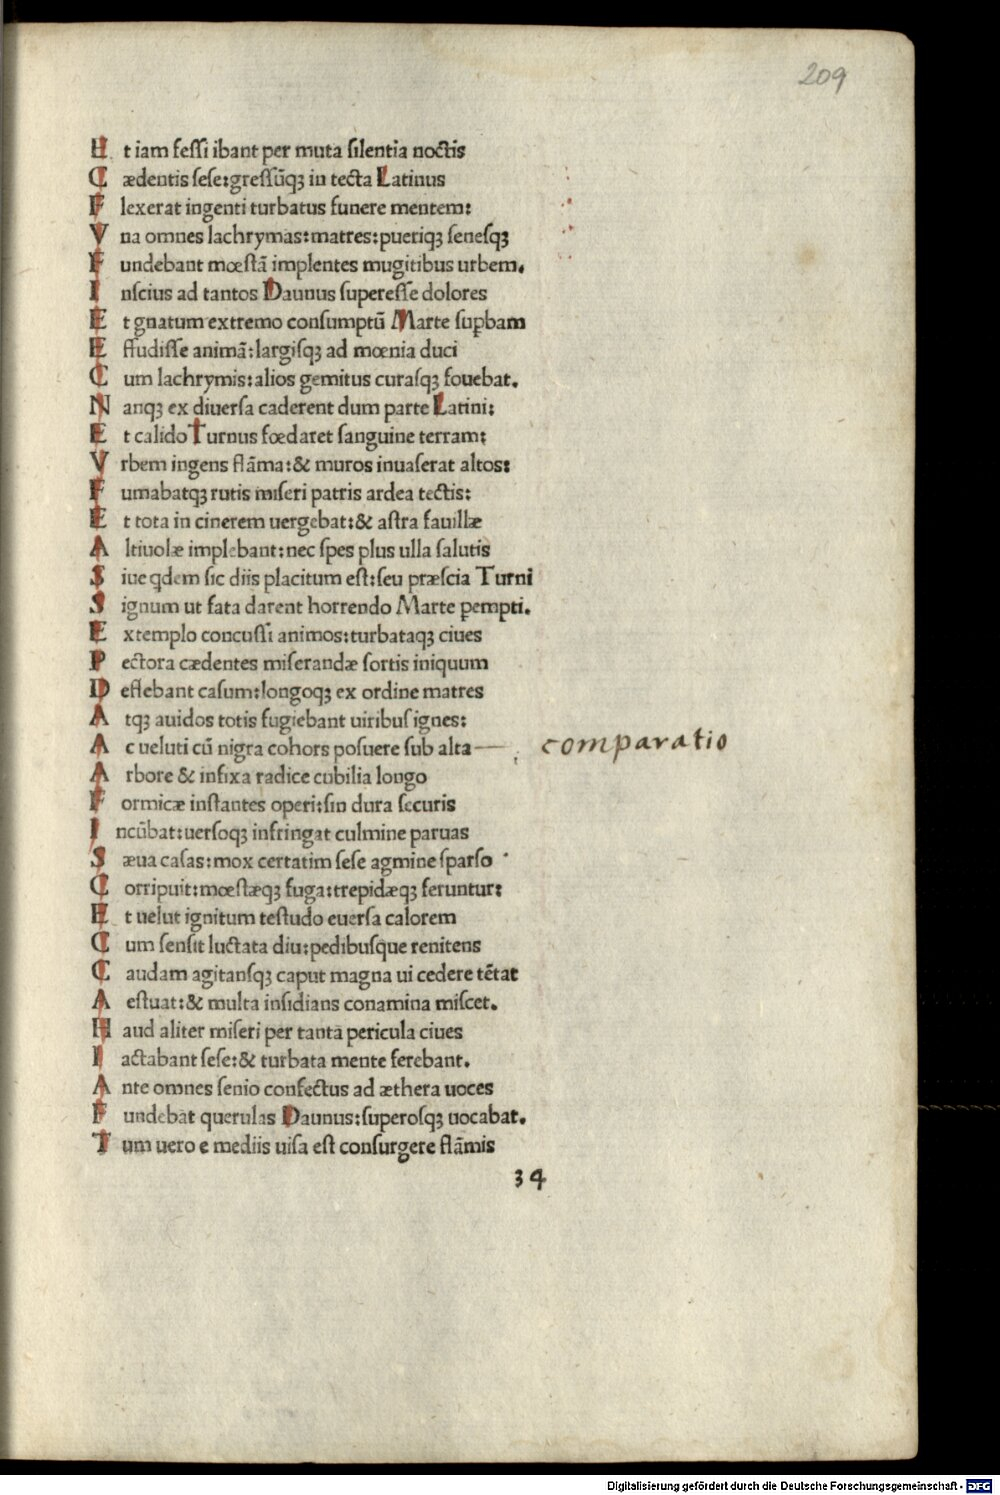 209
E t iam feſſi ibant per muta ſilentia noctis
C ædentis ſeſe:greſſūqꝫ in tecta Latinus
F lexerat ingenti turbatus funere mentem:
V na omnes lachrymas:matres:pueriqꝫ ſeneſqꝫ
F undebant mœſtā implentes mugitibus urbem.
I nſcius ad tantos Daunus ſupereſſe dolores
E t gnatum extremo conſumptū Marte ſuꝑbam
E ffudiſſe animā:largiſqꝫ ad mœnia duci
C um lachrymis:alios gemitus curaſqꝫ fouebat.
N anqꝫ ex diuerſa caderent dum parte Latini:
E t calido Turnus fœdaret ſanguine terram:
V rbem ingens flāma:& muros inuaſerat altos:
F umabatqꝫ rutis miſeri patris ardea tectis:
E t tota in cinerem uergebat:& aſtra fauillæ
A ltiuolæ implebant:nec ſpes plus ulla ſalutis
S iue qdem ſic diis placitum eſt:ſeu præſcia Turni
S ignum ut fata darent horrendo Marte ꝑempti.
E xtemplo concuſſi animos:turbataqꝫ ciues
P ectora cædentes miſerandæ ſortis iniquum
D eflebant caſum:longoqꝫ ex ordine matres
A tqꝫ auidos totis fugiebant uiribuſ ignes:
A c ueluti cū nigra cohors poſuere ſub alta — comparatio
A rbore & infixa radice cubilia longo
F ormicæ inſtantes operi:ſin dura ſecuris
I ncūbat:uerſoqꝫ infringat culmine paruas
S æua caſas:mox certatim ſeſe agmine ſparſo
C orripuit:mœſtæqꝫ fuga:trepidæqꝫ feruntur:
E t uelut ignitum teſtudo euerſa calorem
C um ſenſit luctata diu:pedibuſque renitens
C audam agitanſqꝫ caput magna ui cedere tētat
A eſtuat:& multa inſidians conamina miſcet.
H aud aliter miſeri per tantā pericula ciues
I actabant ſeſe:& turbata mente ferebant.
A nte omnes ſenio confectus ad æthera uoces
F undebat querulas Daunus:ſuperoſqꝫ uocabat.
T um uero e mediis uiſa eſt conſurgere flāmis
34
Digitalisierung gefördert durch die Deutsche Forschungsgemeinschaft - DFG